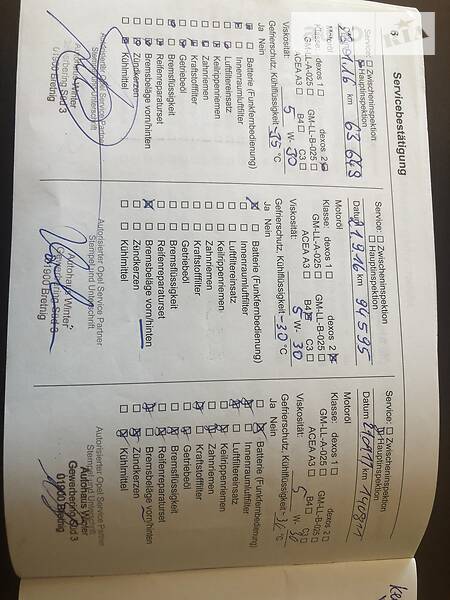 8
Servicebestätigung
Service: ☐ Zwischeninspektion
☒ Hauptinspektion
km 63 649
Motoröl
Klasse: dexos 1 ☐ dexos 2 ☒
GM-LL-A-025 ☐ GM-LL-B-025 ☐
ACEA A3 ☐ B4 ☐ C3 ☐
Viskosität: 5 W- 30
Gefrierschutz, Kühlflüssigkeit -35 °C
Ja Nein
Batterie (Funkfernbedienung)
Innenraumluftfilter
Luftfiltereinsatz
Keilrippenriemen
Zahnriemen
Kraftstofffilter
Getriebeöl
Bremsflüssigkeit
Reifenreparaturset
Bremsbeläge vorn/hinten
Zündkerzen
Kühlmittel
Autorisierter Opel Service Partner
Stempel und Unterschrift
Autohaus Winter
Gewerbering Süd 3
01900 Bretnig
Service: ☐ Zwischeninspektion
☐ Hauptinspektion
Datum km 94595
Motoröl
Klasse: dexos 1 ☐ dexos 2 ☒
GM-LL-A-025 ☐ GM-LL-B-025 ☐
ACEA A3 ☐ B4 ☐ C3 ☐
Viskosität: 5 W- 30
Gefrierschutz, Kühlflüssigkeit -30 °C
Ja Nein
Batterie (Funkfernbedienung)
Innenraumluftfilter
Luftfiltereinsatz
Keilrippenriemen
Zahnriemen
Kraftstofffilter
Getriebeöl
Bremsflüssigkeit
Reifenreparaturset
Bremsbeläge vorn/hinten
Zündkerzen
Kühlmittel
Autorisierter Opel Service Partner
Stempel und Unterschrift
Autohaus Winter
Gewerbering Süd 3
01900 Bretnig
Service: ☐ Zwischeninspektion
☒ Hauptinspektion
Datum km
Motoröl
Klasse: dexos 1 ☐ dexos 2 ☐
GM-LL-A-025 ☐ GM-LL-B-025 ☐
ACEA A3 ☐ B4 ☐ C3 ☐
Viskosität: 5 W- 30
Gefrierschutz, Kühlflüssigkeit °C
Ja Nein
Batterie (Funkfernbedienung)
Innenraumluftfilter
Luftfiltereinsatz
Keilrippenriemen
Zahnriemen
Kraftstofffilter
Getriebeöl
Bremsflüssigkeit
Reifenreparaturset
Bremsbeläge vorn/hinten
Zündkerzen
Kühlmittel
Autorisierter Opel Service Partner
Stempel und Unterschrift
Autohaus Winter
Gewerbering Süd 3
01900 Bretnig